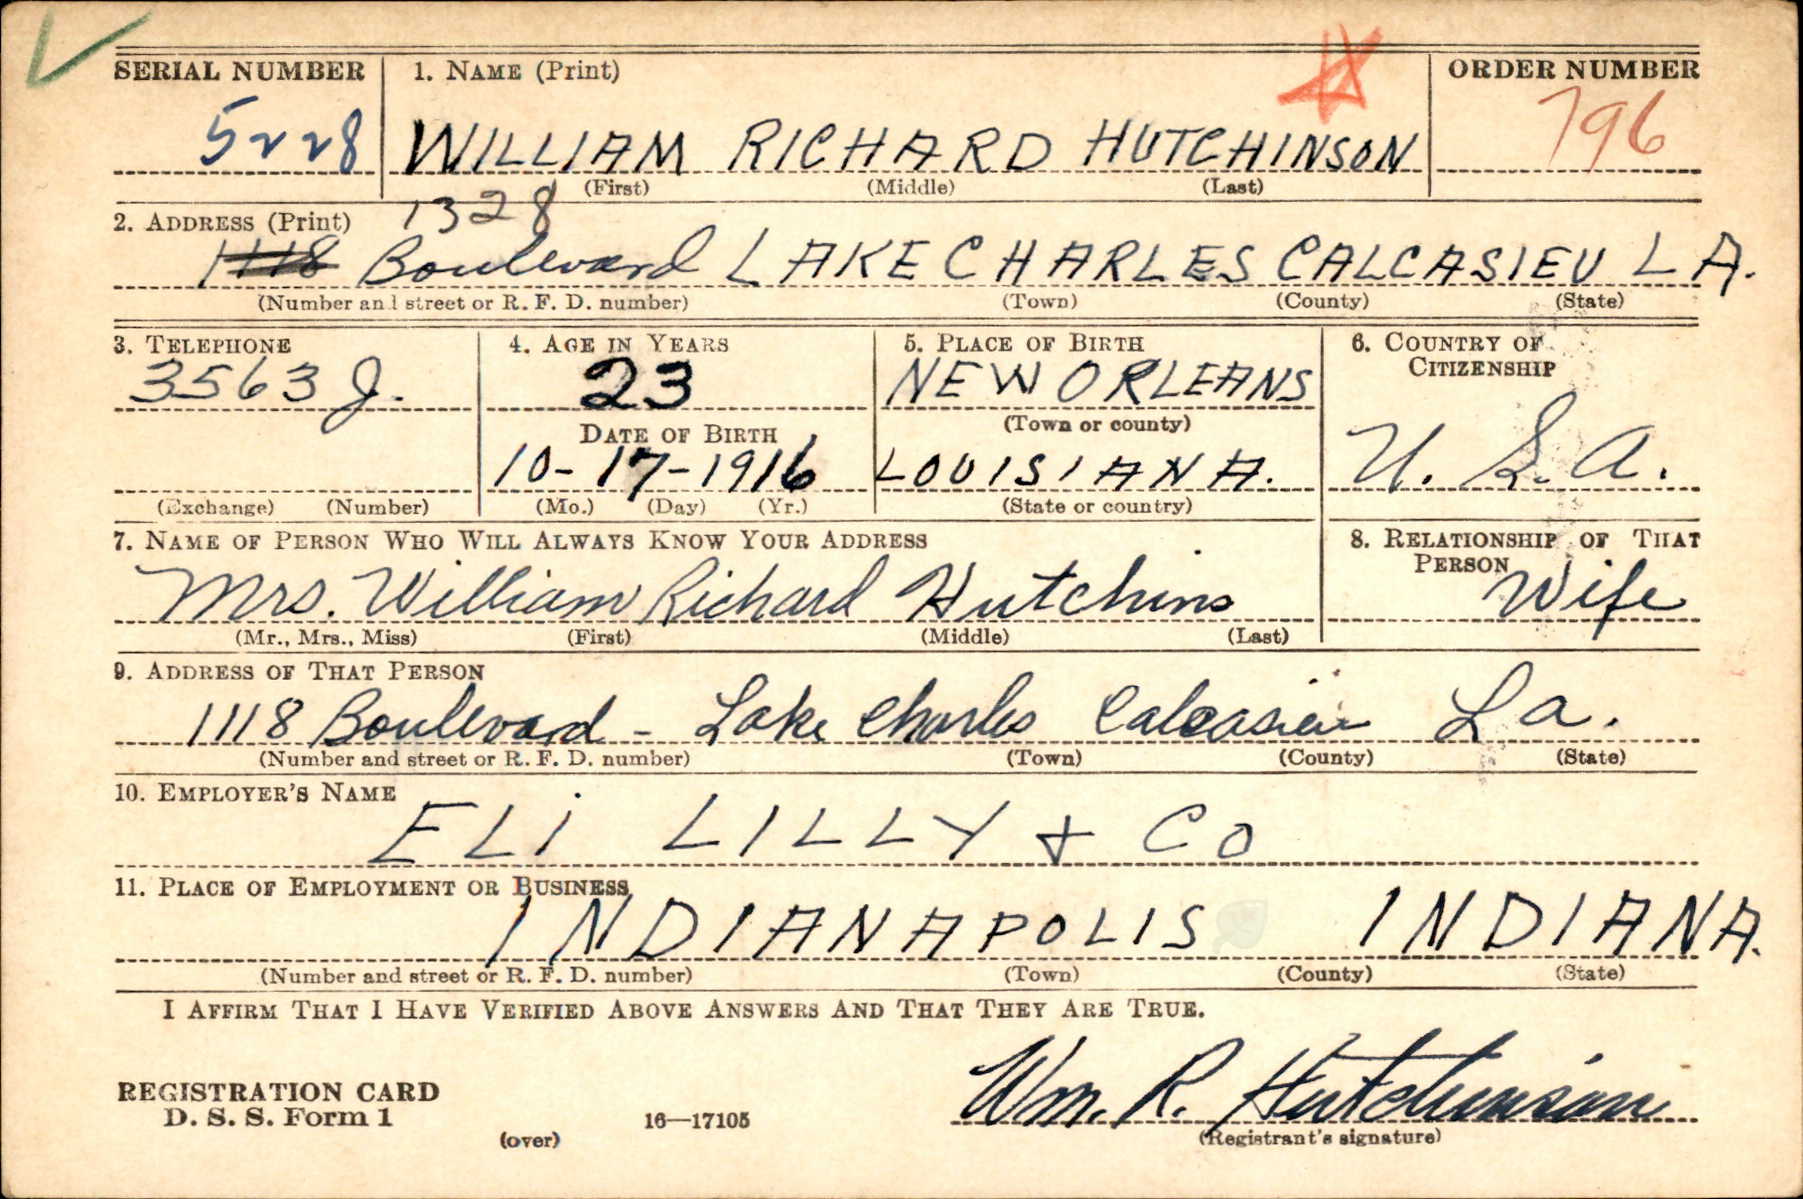 SERIAL NUMBER 1. NAME (Print) ORDER NUMBER
5228 WILLIAM RICHARD HUTCHINSON 796
(First) (Middle) (Last)
2. ADDRESS (Print) 1328
1118 Boulevard LAKE CHARLES CALCASIEU LA.
(Number and street or R. F. D. number) (Town) (County) (State)
3. TELEPHONE 4. AGE IN YEARS 5. PLACE OF BIRTH 6. COUNTRY OF CITIZENSHIP
3563 J. 23 NEW ORLEANS
(Town or county)
DATE OF BIRTH
10-17-1916 LOUISIANA. U. S. A.
(Exchange) (Number) (Mo.) (Day) (Yr.) (State or country)
7. NAME OF PERSON WHO WILL ALWAYS KNOW YOUR ADDRESS 8. RELATIONSHIP OF THAT PERSON
Mrs. William Richard Hutchins Wife
(Mr., Mrs., Miss) (First) (Middle) (Last)
9. ADDRESS OF THAT PERSON
1118 Boulevard - Lake Charles Calcasieu La.
(Number and street or R. F. D. number) (Town) (County) (State)
10. EMPLOYER'S NAME
ELI LILLY + CO
11. PLACE OF EMPLOYMENT OR BUSINESS
INDIANAPOLIS INDIANA.
(Number and street or R. F. D. number) (Town) (County) (State)
I AFFIRM THAT I HAVE VERIFIED ABOVE ANSWERS AND THAT THEY ARE TRUE.
Wm. R. Hutchinson
REGISTRATION CARD
D. S. S. Form 1
(over) 16—17105 (Registrant's signature)